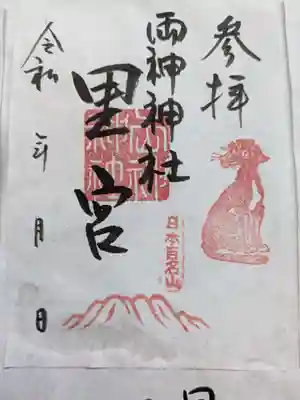 参拝
両神神社
里宮
日本百名山
令和 年 月 日